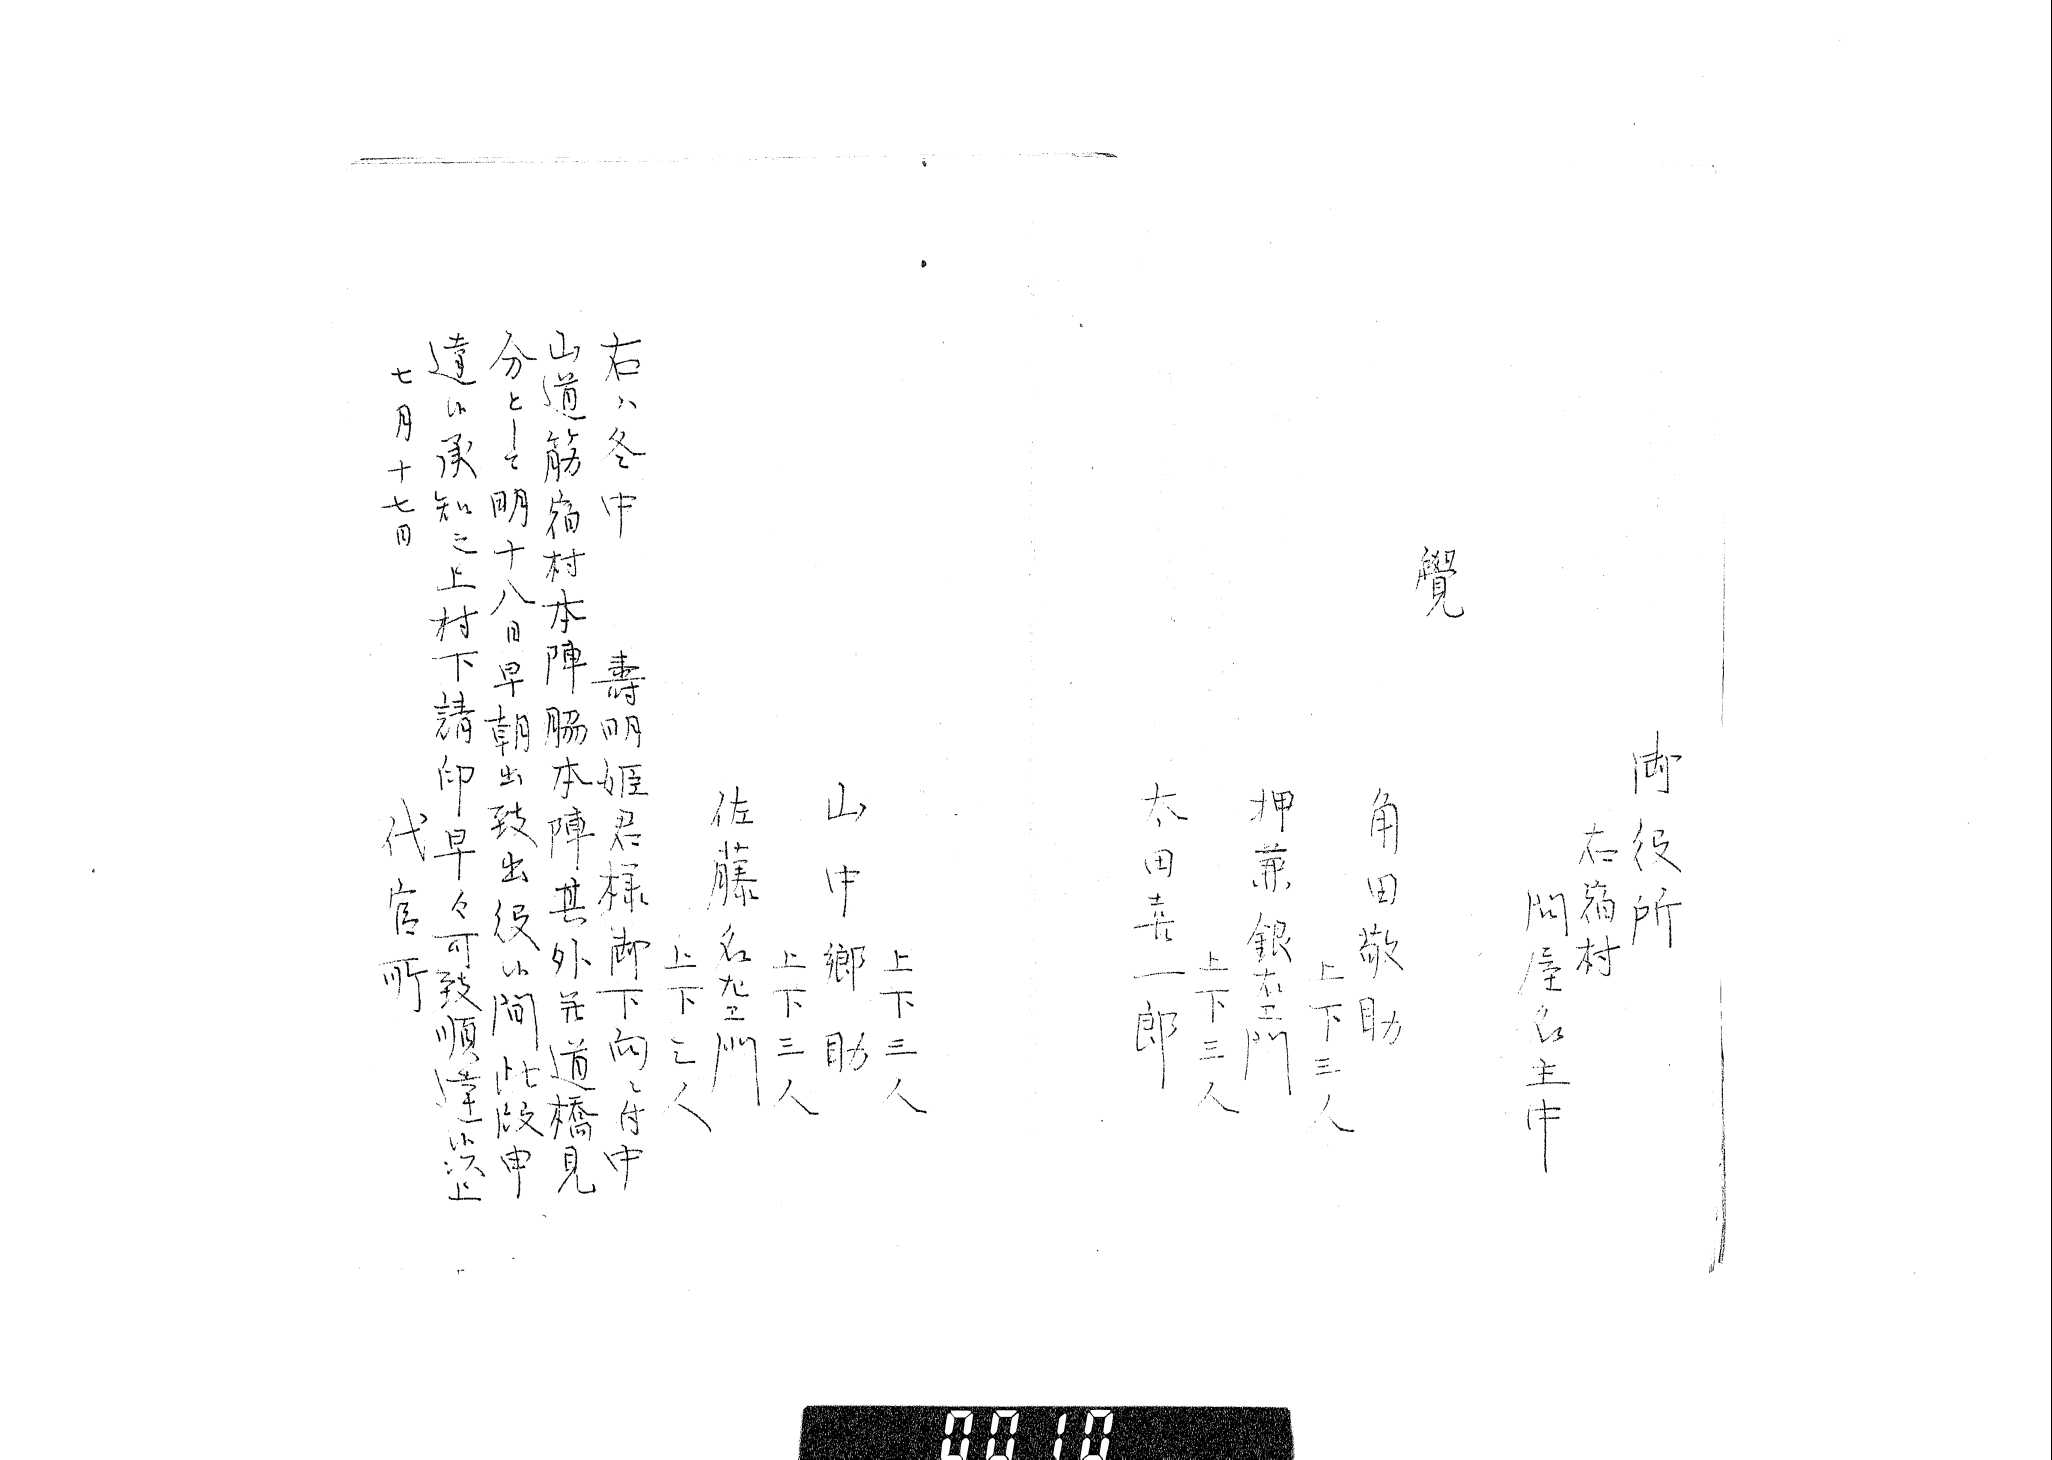 御役所
右宿村
問屋名主中
覺
角田敬助
上下三人
押兼銀右衛門
上下三人
太田喜一郎
上下三人
山中郷助
上下三人
佐藤名左衛門
上下三人
右ハ冬中　壽明姫君様御下向ニ付中
山道筋宿村本陣脇本陣其外并道橋見
分として明十八日早朝出致出役候間此段申
達候承知之上村下請印早々可致順達候以上
七月十七日
代官所
0010